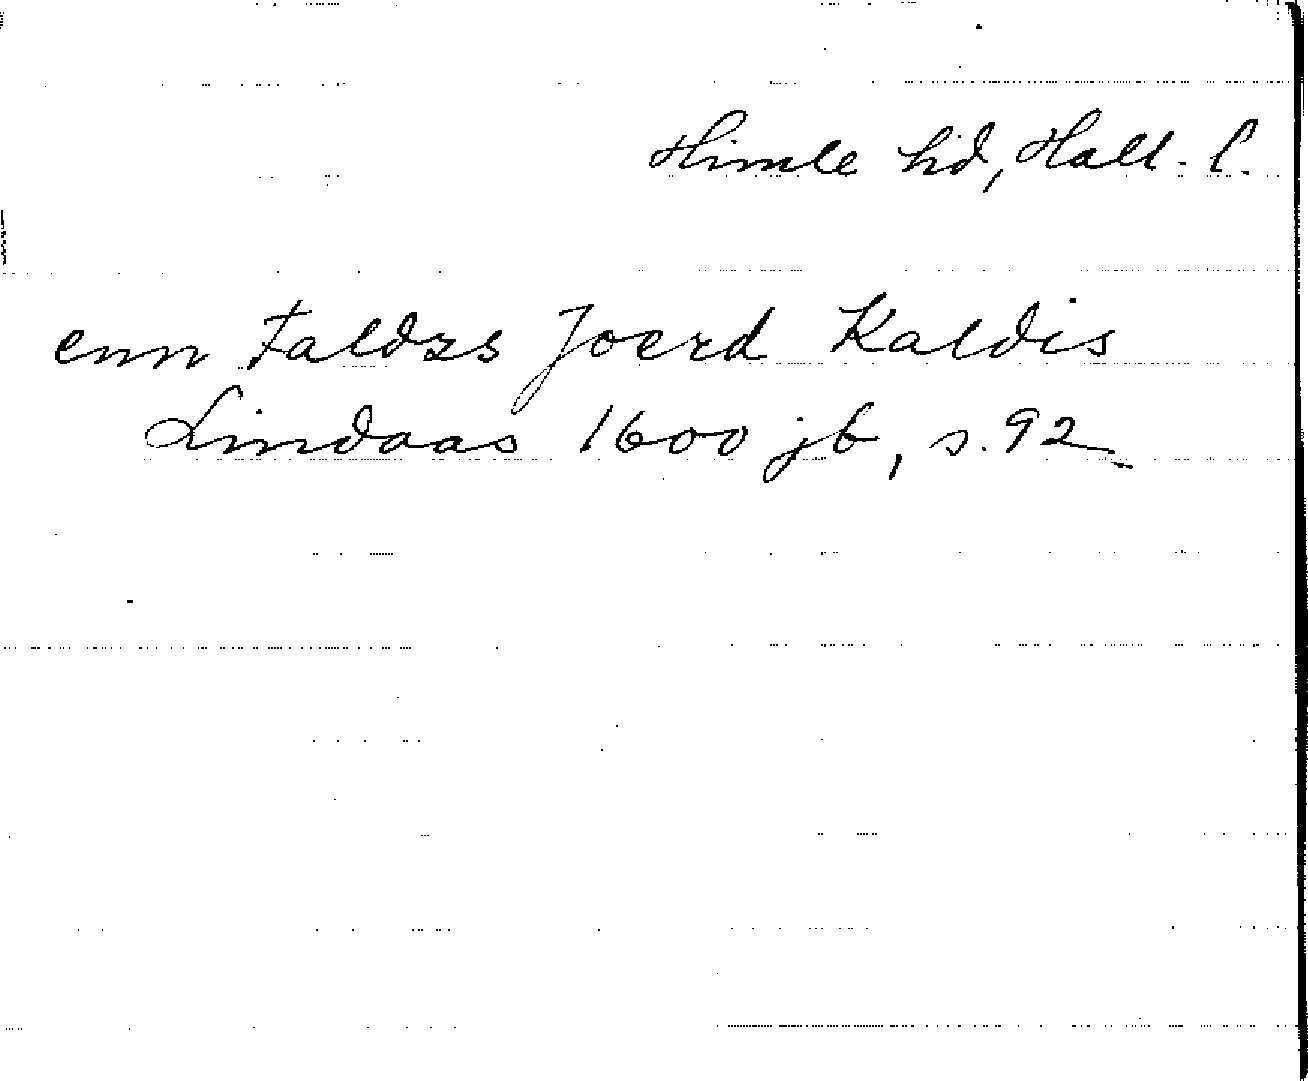 Himle hd, Hall. l.
enn Faldzs Joerd Kaldis
Lindaas 1600 jb, s. 92